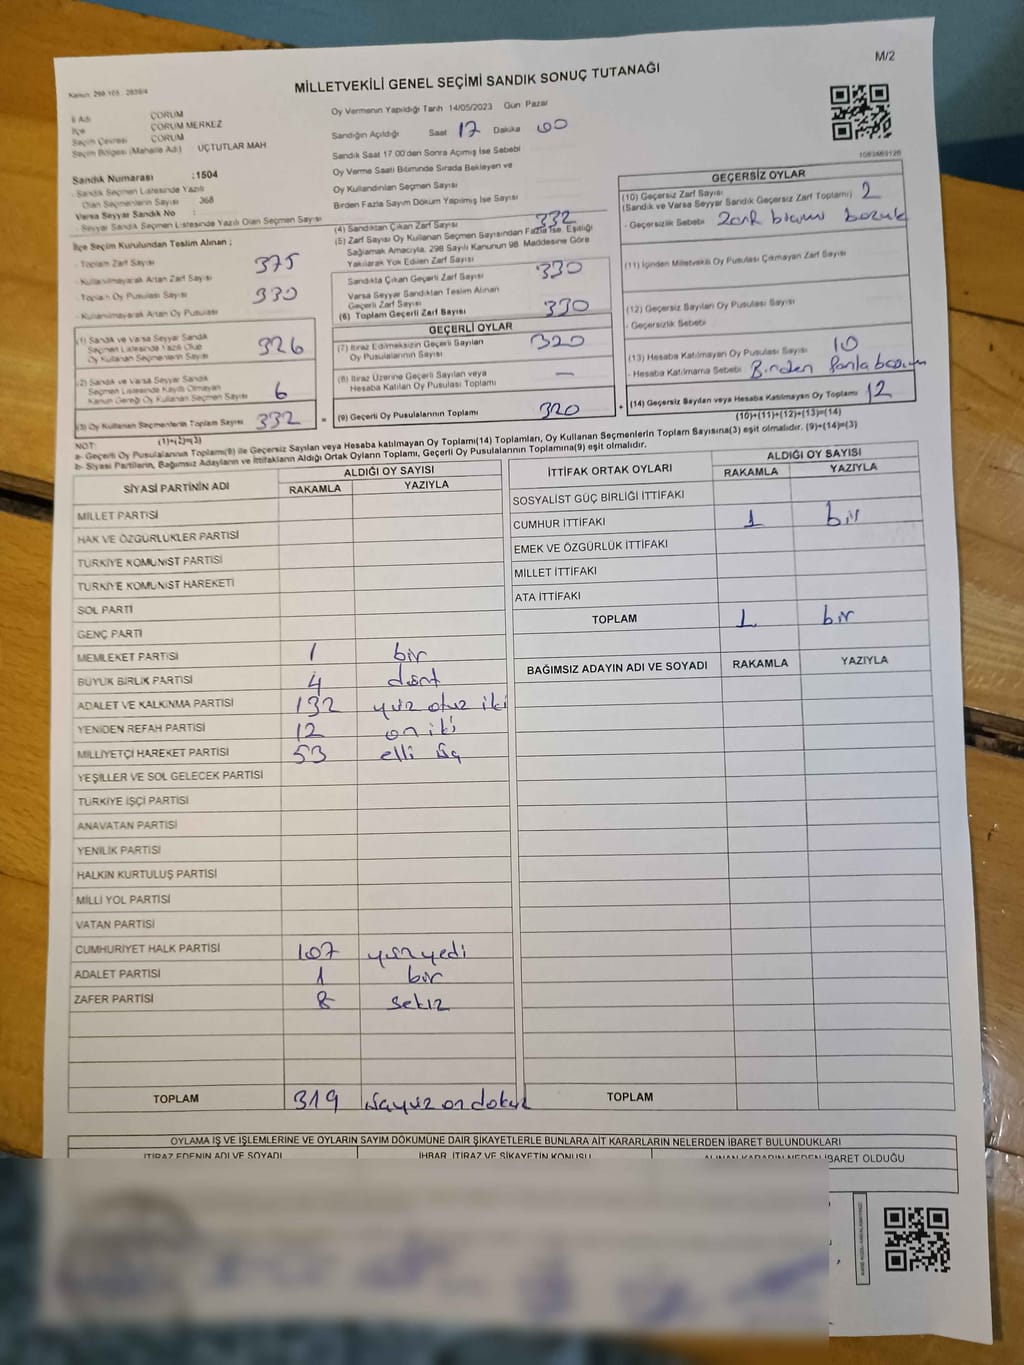 M/2
MİLLETVEKİLİ GENEL SEÇİMİ SANDIK SONUÇ TUTANAĞI
İl Adı ÇORUM
İlçe ÇORUM MERKEZ
Seçim Çevresi ÇORUM
Seçim Bölgesi (Mahalle Adı) UÇTUTLAR MAH
Sandık Numarası :1504
- Sandık Seçmen Listesinde Yazılı
Olan Seçmenlerin Sayısı 368
Varsa Seyyar Sandık No :
- Seyyar Sandık Seçmen Listesinde Yazılı Olan Seçmen Sayısı
İlçe Seçim Kurulundan Teslim Alınan ;
- Toplam Zarf Sayısı 375
- Kullanılmayarak Artan Zarf Sayısı
- Toplam Oy Pusulası Sayısı 330
- Kullanılmayarak Artan Oy Pusulası
(1) Sandık ve Varsa Seyyar Sandık
Seçmen Listesinde Yazılı Olup
Oy Kullanan Seçmenlerin Sayısı 326
(2) Sandık ve Varsa Seyyar Sandık
Seçmen Listesinde Kayıtlı Olmayan
Kanun Gereği Oy Kullanan Seçmen Sayısı 6
(3) Oy Kullanan Seçmenlerin Toplam Sayısı 332
(1)+(2)=(3)
Oy Vermenin Yapıldığı Tarih 14/05/2023 Gün Pazar
Sandığın Açıldığı Saat 17 Dakika 00
Sandık Saat 17:00'den Sonra Açılmış İse Sebebi
Oy Verme Saati Bitiminde Sırada Bekleyen ve
Oy Kullandırılan Seçmen Sayısı
Birden Fazla Sayım Döküm Yapılmış İse Sayısı
(4) Sandıktan Çıkan Zarf Sayısı 332
(5) Zarf Sayısı Oy Kullanan Seçmen Sayısından Fazla İse, Eşitliği
Sağlamak Amacıyla, 298 Sayılı Kanunun 98. Maddesine Göre
Yakılarak Yok Edilen Zarf Sayısı
Sandıkta Çıkan Geçerli Zarf Sayısı 330
Varsa Seyyar Sandıktan Teslim Alınan
Geçerli Zarf Sayısı
(6) Toplam Geçerli Zarf Sayısı 330
GEÇERLİ OYLAR
(7) İtiraz Edilmeksizin Geçerli Sayılan
Oy Pusulalarının Sayısı 320
(8) İtiraz Üzerine Geçerli Sayılan veya
Hesaba Katılan Oy Pusulası Toplamı —
= (9) Geçerli Oy Pusulalarının Toplamı 320
GEÇERSİZ OYLAR
(10) Geçersiz Zarf Sayısı 2
(Sandık ve Varsa Seyyar Sandık Geçersiz Zarf Toplamı)
- Geçersizlik Sebebi bozuk
(11) İçinden Milletvekili Oy Pusulası Çıkmayan Zarf Sayısı
(12) Geçersiz Sayılan Oy Pusulası Sayısı
- Geçersizlik Sebebi
(13) Hesaba Katılmayan Oy Pusulası Sayısı 10
- Hesaba Katılmama Sebebi Birden
+ (14) Geçersiz Sayılan veya Hesaba Katılmayan Oy Toplamı 12
(10)+(11)+(12)+(13)=(14)
NOT:
a- Geçerli Oy Pusulalarının Toplamı(9) ile Geçersiz Sayılan veya Hesaba katılmayan Oy Toplamı(14) Toplamları, Oy Kullanan Seçmenlerin Toplam Sayısına(3) eşit olmalıdır. (9)+(14)=(3)
b- Siyasi Partilerin, Bağımsız Adayların ve İttifakların Aldığı Ortak Oyların Toplamı, Geçerli Oy Pusulalarının Toplamına(9) eşit olmalıdır.
SİYASİ PARTİNİN ADI ALDIĞI OY SAYISI
RAKAMLA YAZIYLA
MİLLET PARTİSİ
HAK VE ÖZGÜRLÜKLER PARTİSİ
TÜRKİYE KOMÜNİST PARTİSİ
TÜRKİYE KOMÜNİST HAREKETİ
SOL PARTİ
GENÇ PARTİ
MEMLEKET PARTİSİ 1 bir
BÜYÜK BİRLİK PARTİSİ 4 dört
ADALET VE KALKINMA PARTİSİ 132 yüz otuz iki
YENİDEN REFAH PARTİSİ 12 on iki
MİLLİYETÇİ HAREKET PARTİSİ 53 elli üç
YEŞİLLER VE SOL GELECEK PARTİSİ
TÜRKİYE İŞÇİ PARTİSİ
ANAVATAN PARTİSİ
YENİLİK PARTİSİ
HALKIN KURTULUŞ PARTİSİ
MİLLİ YOL PARTİSİ
VATAN PARTİSİ
CUMHURİYET HALK PARTİSİ 107 yüzyedi
ADALET PARTİSİ 1 bir
ZAFER PARTİSİ 8 sekiz
TOPLAM 319 üçyüz on dokuz
İTTİFAK ORTAK OYLARI ALDIĞI OY SAYISI
RAKAMLA YAZIYLA
SOSYALİST GÜÇ BİRLİĞİ İTTİFAKI
CUMHUR İTTİFAKI 1 bir
EMEK VE ÖZGÜRLÜK İTTİFAKI
MİLLET İTTİFAKI
ATA İTTİFAKI
TOPLAM 1 bir
BAĞIMSIZ ADAYIN ADI VE SOYADI RAKAMLA YAZIYLA
TOPLAM
OYLAMA İŞ VE İŞLEMLERİNE VE OYLARIN SAYIM DÖKÜMÜNE DAİR ŞİKAYETLERLE BUNLARA AİT KARARLARIN NELERDEN İBARET BULUNDUKLARI
İTİRAZ EDENİN ADI VE SOYADI İHBAR, İTİRAZ VE ŞİKAYETİN KONUSU ALINAN KARARIN NEDEN İBARET OLDUĞU